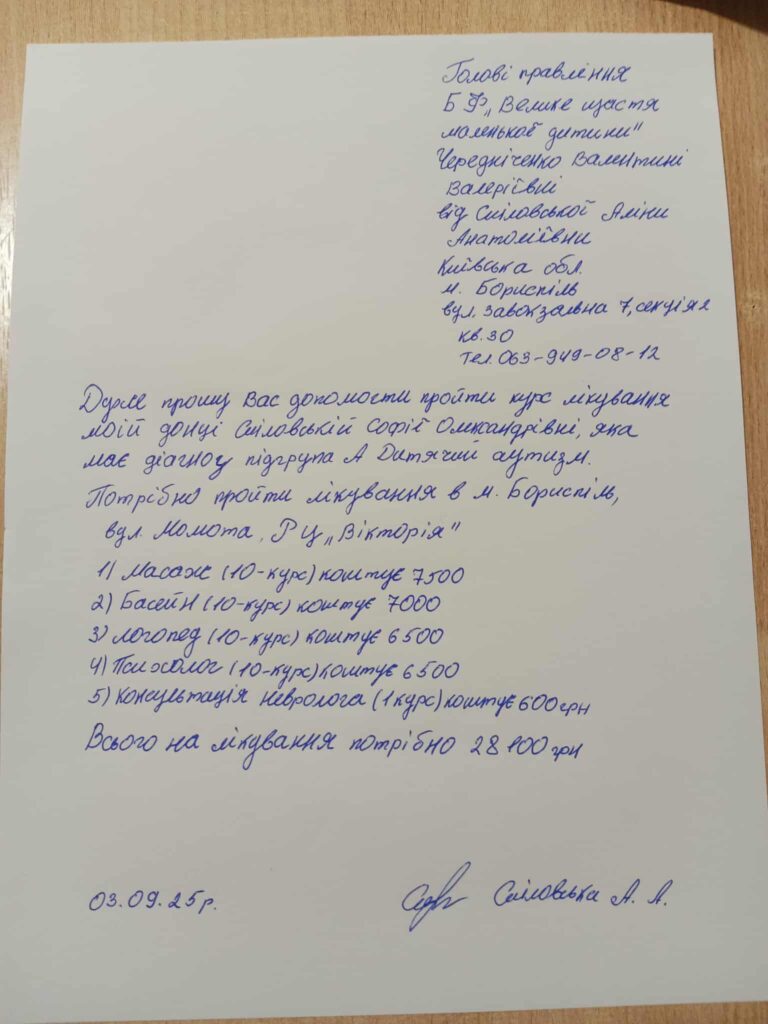 Голові правління
БФ „Велике щастя
маленької дитини"
Чередніченко Валентині
Валеріївні
від Смпловської Аліни
Анатоліївни
Київська обл.
м. Бориспіль
вул. Завокзальна 7, секція 2
кв. 30
тел. 063-949-08-12
Дуже прошу Вас допомогти пройти курс лікування
моїй донці Софії Олександрівні, яка
має діагноз підгрупа А Дитячий аутизм.
Потрібно пройти лікування в м. Бориспіль,
вул. Момота, РЦ „Вікторія"
1) Масаж (10-курс) коштує 7500
2) Басейн (10-курс) коштує 7000
3) Логопед (10-курс) коштує 6500
4) Психолог (10-курс) коштує 6500
5) Консультація невролога (1 курс) коштує 600 грн
Всього на лікування потрібно 28100 грн
03.09.25р. А. А.